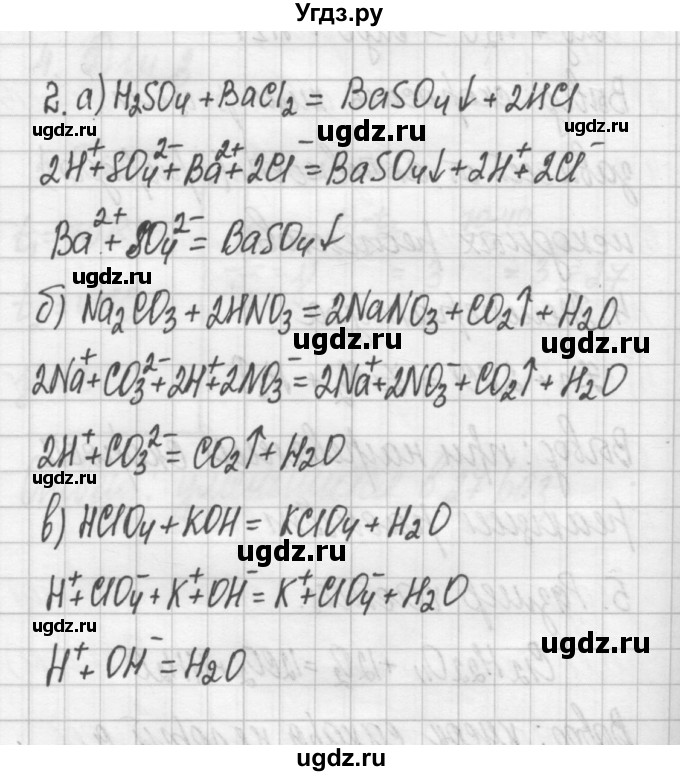 Угдз.ру
2. а) H₂SO₄ + BaCl₂ = BaSO₄↓ + 2HCl
ugdz.ru ugdz.ru ugdz.ru
2H⁺ + SO₄²⁻ + Ba²⁺ + 2Cl⁻ = BaSO₄↓ + 2H⁺ + 2Cl⁻
Ba²⁺ + SO₄²⁻ = BaSO₄↓
ugdz.ru ugdz.ru
б) Na₂CO₃ + 2HNO₃ = 2NaNO₃ + CO₂↑ + H₂O
ugdz.ru ugdz.ru
2Na⁺ + CO₃²⁻ + 2H⁺ + 2NO₃⁻ = 2Na⁺ + 2NO₃⁻ + CO₂↑ + H₂O
ugdz.ru ugdz.ru
2H⁺ + CO₃²⁻ = CO₂↑ + H₂O
в) HClO₄ + KOH = KClO₄ + H₂O
ugdz.ru
H⁺ + ClO₄⁻ + K⁺ + OH⁻ = K⁺ + ClO₄⁻ + H₂O
ugdz.ru ugdz.ru
H⁺ + OH⁻ = H₂O
ugdz.ru
ugdz.ru ugdz.ru
ugdz.ru